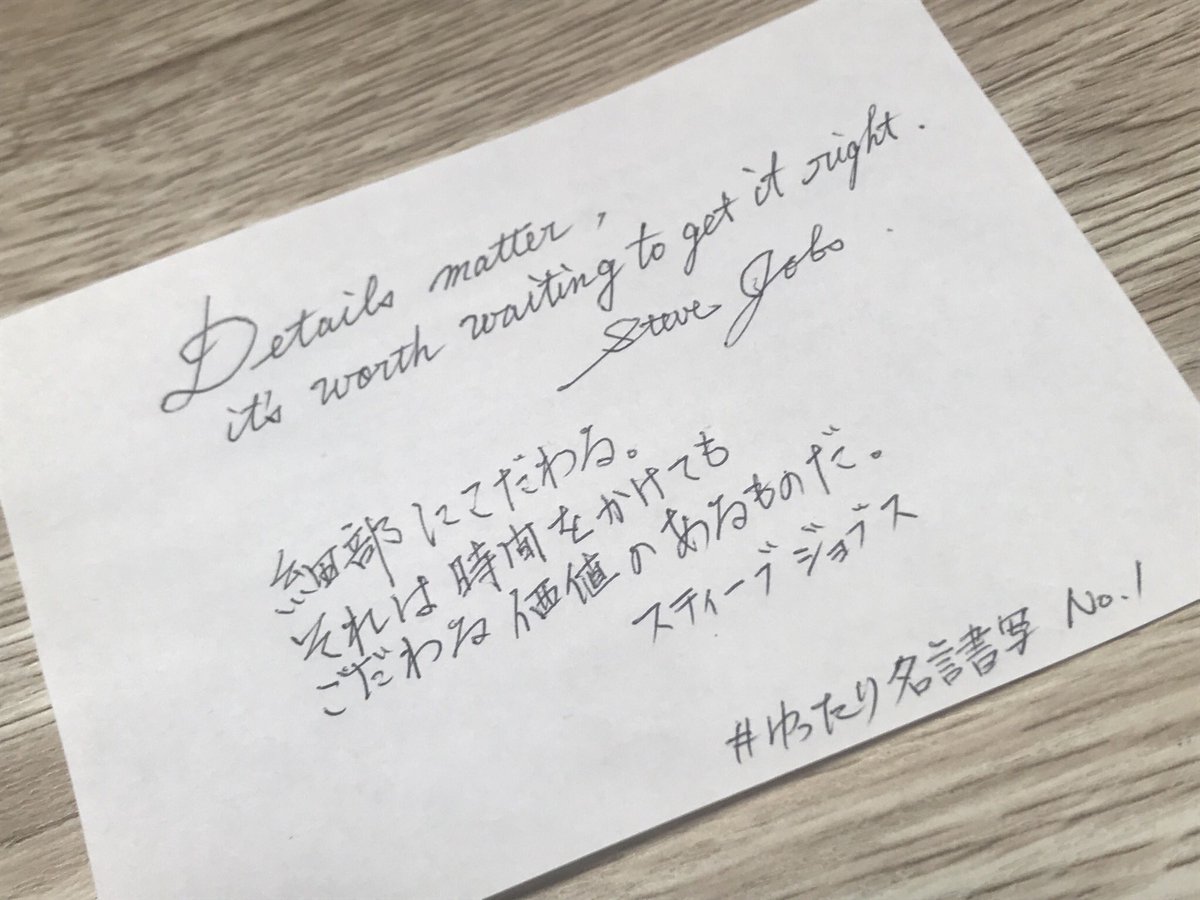 Details matter,
it's worth waiting to get it right.
Steve Jobs
細部にこだわる。
それは時間をかけても
こだわる価値のあるものだ。
スティーブ ジョブス
#ゆったり名言書写 No.1